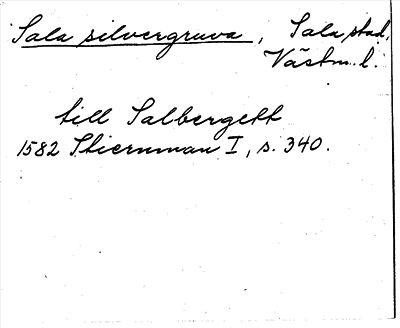 Sala silvergruva, Sala stad,
Västm. l.
till Salbergett
1582 Stiernman I, s. 340.